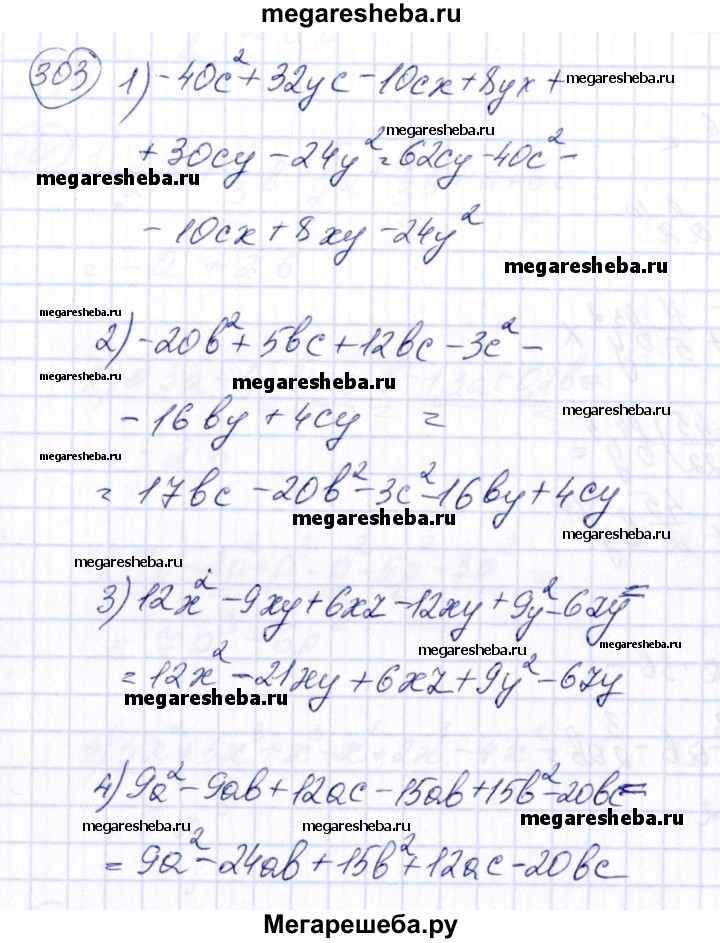 megaresheba.ru
303 1) -40c² + 32yc - 10cx + 8yx + megaresheba.ru
megaresheba.ru
+ 30cy - 24y² = 62cy - 40c² -
megaresheba.ru
- 10cx + 8xy - 24y²
megaresheba.ru
megaresheba.ru
2) -20b² + 5bc + 12bc - 3c² -
megaresheba.ru megaresheba.ru
- 16by + 4cy = megaresheba.ru
megaresheba.ru
= 17bc - 20b² - 3c² - 16by + 4cy
megaresheba.ru megaresheba.ru
megaresheba.ru
3) 12x² - 9xy + 6xz - 12xy + 9y² - 6zy =
megaresheba.ru
= 12x² - 21xy + 6xz + 9y² - 6zy
megaresheba.ru
4) 9a² - 9ab + 12ac - 15ab + 15b² - 20bc =
megaresheba.ru megaresheba.ru megaresheba.ru
= 9a² - 24ab + 15b² + 12ac - 20bc
Мегарешеба.ру